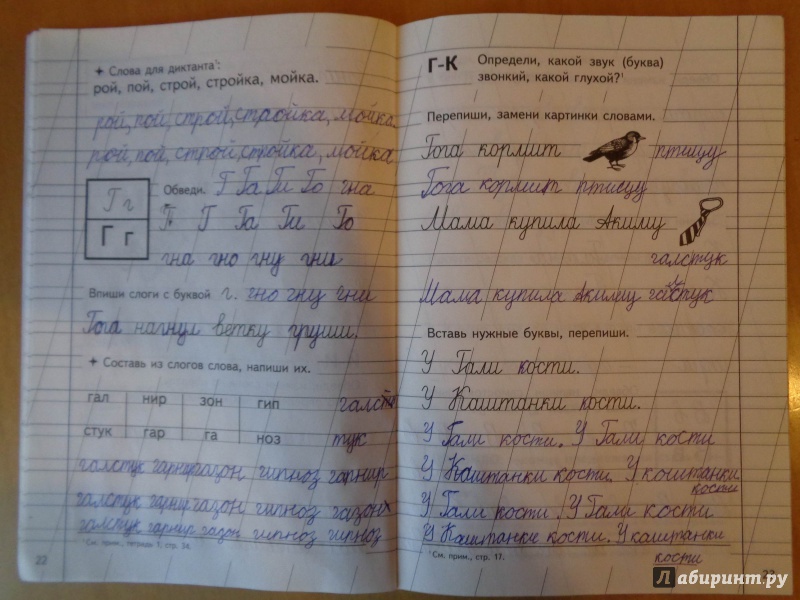 + Слова для диктанта¹:
рой, пой, строй, стройка, мойка.
рой, пой, строй, страойка, мойка.
рой, пой, строй, стройка, мойка
Г г
Г г
Обведи. Г Га Ги Го гна
Г Г Га Ги Го
гна гно гну гни
Впиши слоги с буквой г. гно гну гни
Гога нагнул ветку груши.
+ Составь из слогов слова, напиши их.
гал нир зон гип галст
стук гар га ноз тук
галстук гарнир газон гипноз гарнир
галстук гарнир газон гипноз газон
галстук гарнир газон гипноз гипноз
¹См. прим., тетради 1, стр. 34.
22
Г-К
Определи, какой звук (буква)
звонкий, какой глухой?¹
Перепиши, замени картинки словами.
Гога кормит птицу
Гога кормит птицу
Мама купила Акиму
галстук
Мама купила Акиму галстук
Вставь нужные буквы, перепиши.
У Гали кости.
У Каштанки кости.
У Гали кости. У Гали кости
У Каштанки кости. У коштанки
кости
У Гали кости. У Гали кости
У Каштанке кости. У каштанке
кости
¹См. прим., стр. 17.
23
Лабиринт.ру